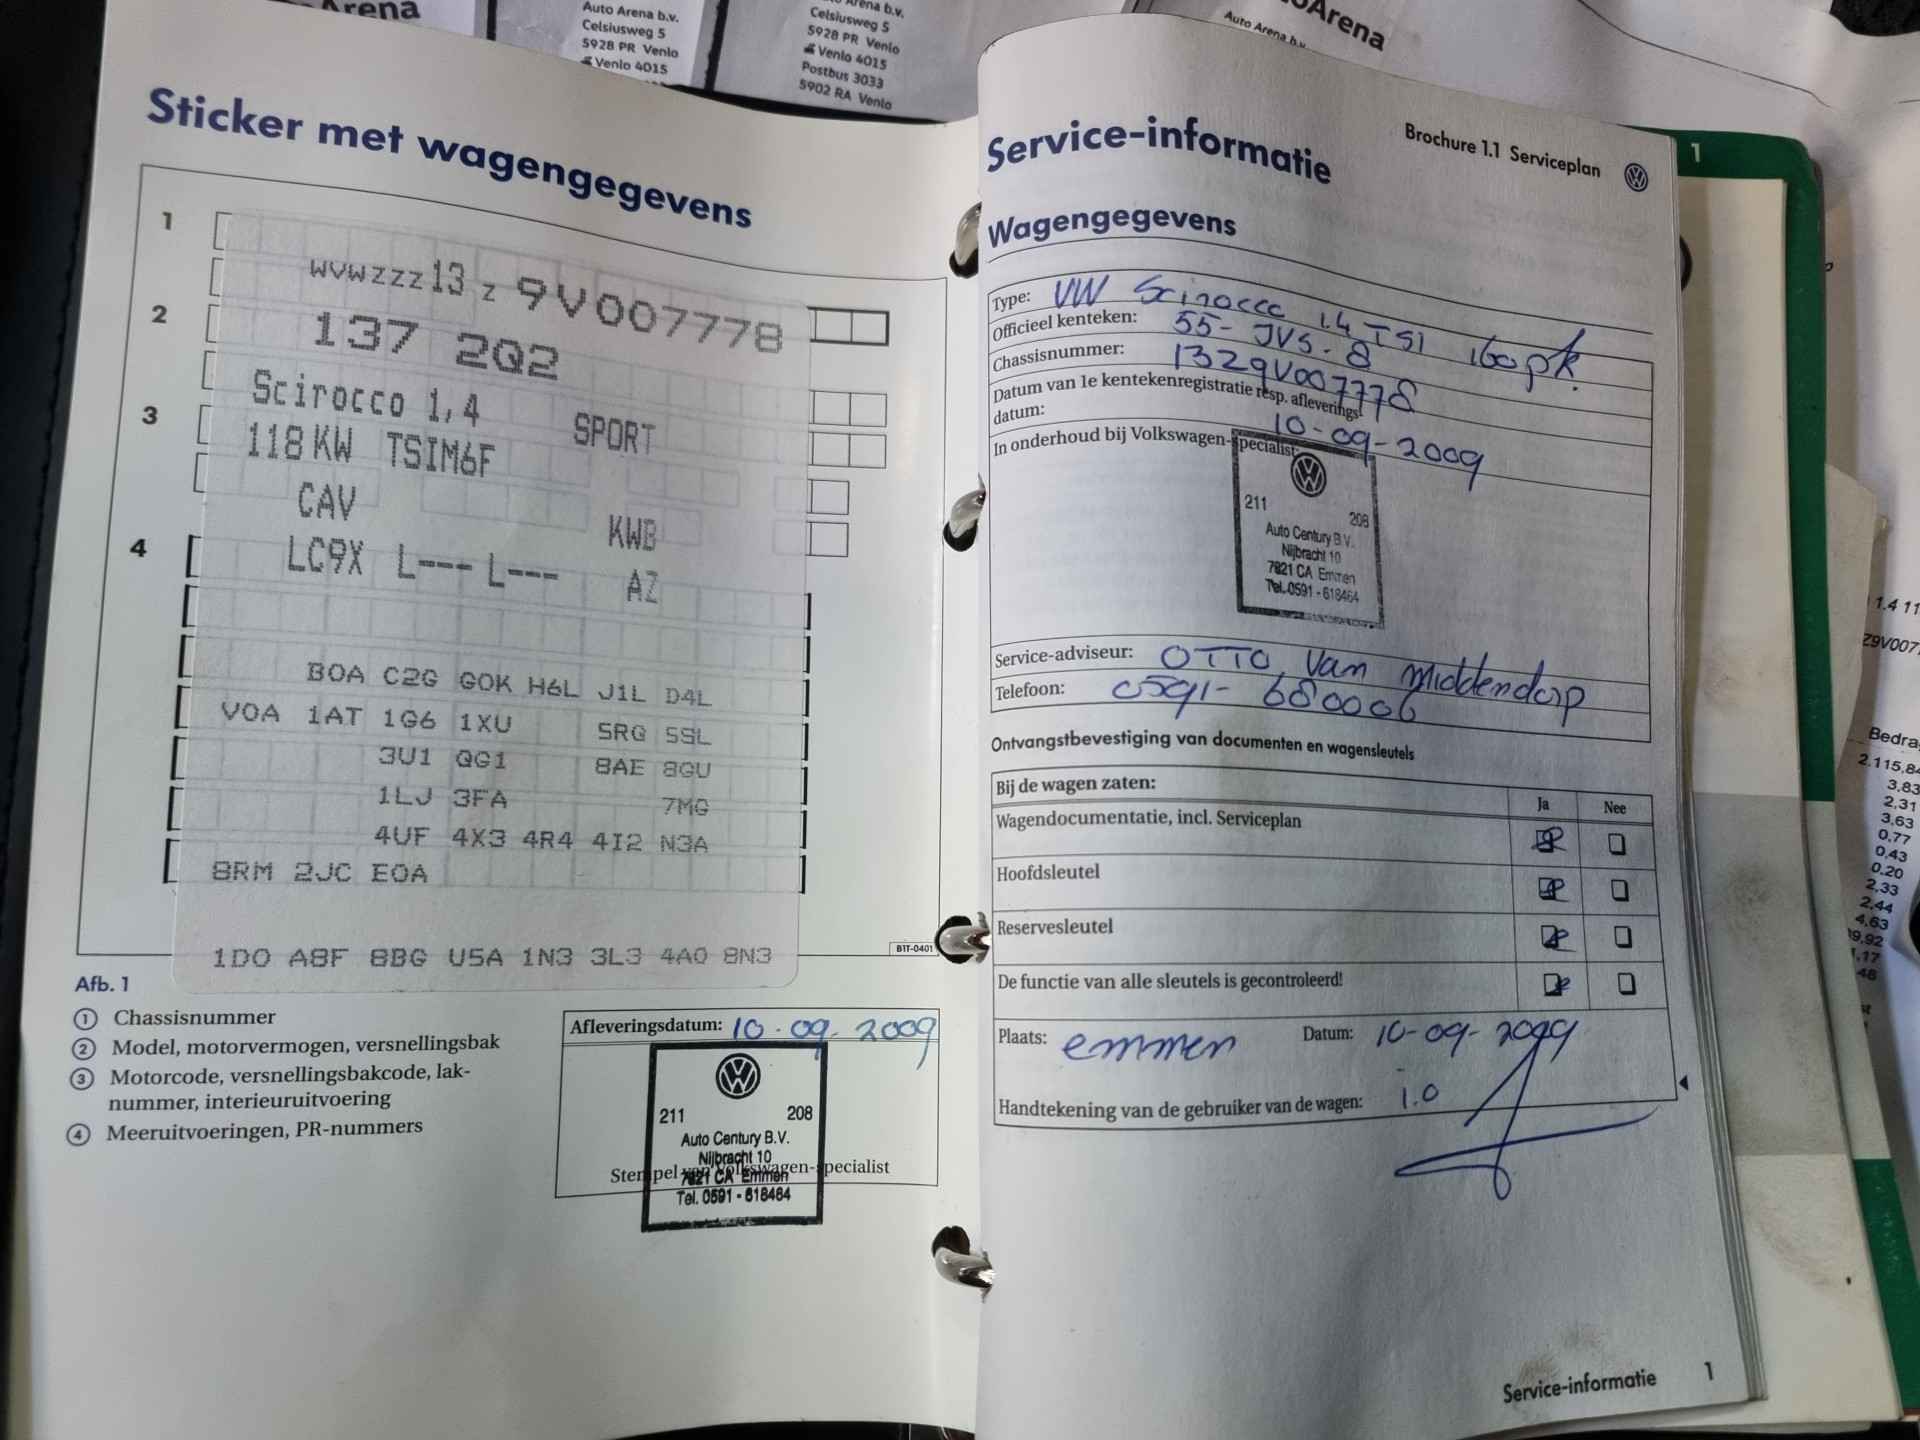 Arena
Auto Arena b.v.
Celsiusweg 5
5928 PR Venlo
Venlo 4015
Arena b.v.
Celsiusweg 5
5928 PR Venlo
Venlo 4015
Postbus 3033
5902 RA Venlo
oArena
Auto Arena b.v.
Sticker met wagengegevens
1
WVWZZZ13 Z 9V007778
2
137 2Q2
Scirocco 1,4 SPORT
3
118KW TSIM6F
CAV KWB
4
LC9X L--- L--- AZ
B0A C2G G0K H6L J1L D4L
V0A 1AT 1G6 1XU 5RG 5SL
3U1 QG1 8AE 8GU
1LJ 3FA 7MG
4UF 4X3 4R4 4I2 N3A
8RM 2JC E0A
1D0 A8F 8BG U5A 1N3 3L3 4A0 8N3
B1T-0401
Afb. 1
1 Chassisnummer
2 Model, motorvermogen, versnellingsbak
3 Motorcode, versnellingsbakcode, lak-
nummer, interieuruitvoering
4 Meeruitvoeringen, PR-nummers
Afleveringsdatum: 10-09-2009
211 208
Auto Century B.V.
Nijbracht 10
7821 CA Emmen
Tel. 0591 - 618464
Stempel van Volkswagen-specialist
Brochure 1.1 Serviceplan
1
Service-informatie
Wagengegevens
Type: VW Scirocco 1.4 TSI 160pk.
Officieel kenteken: 55-JVS-8
Chassisnummer: 13Z9V007778
Datum van 1e kentekenregistratie resp. afleverings-
datum: 10-09-2009
In onderhoud bij Volkswagen-specialist:
211 208
Auto Century B.V.
Nijbracht 10
7821 CA Emmen
Tel. 0591 - 618464
Service-adviseur: OTTO van Middendorp
Telefoon: 0591- 680006
Ontvangstbevestiging van documenten en wagensleutels
Bij de wagen zaten: Ja Nee
Wagendocumentatie, incl. Serviceplan
Hoofdsleutel
Reservesleutel
De functie van alle sleutels is gecontroleerd!
Plaats: emmen Datum: 10-09-2009
Handtekening van de gebruiker van de wagen: i.o
Service-informatie 1
1.4 11
Z9V007
Bedra
2.115,84
3,83
2,31
3,63
0,77
0,43
0,20
2,33
2,44
4,63
9,92
1,17
48